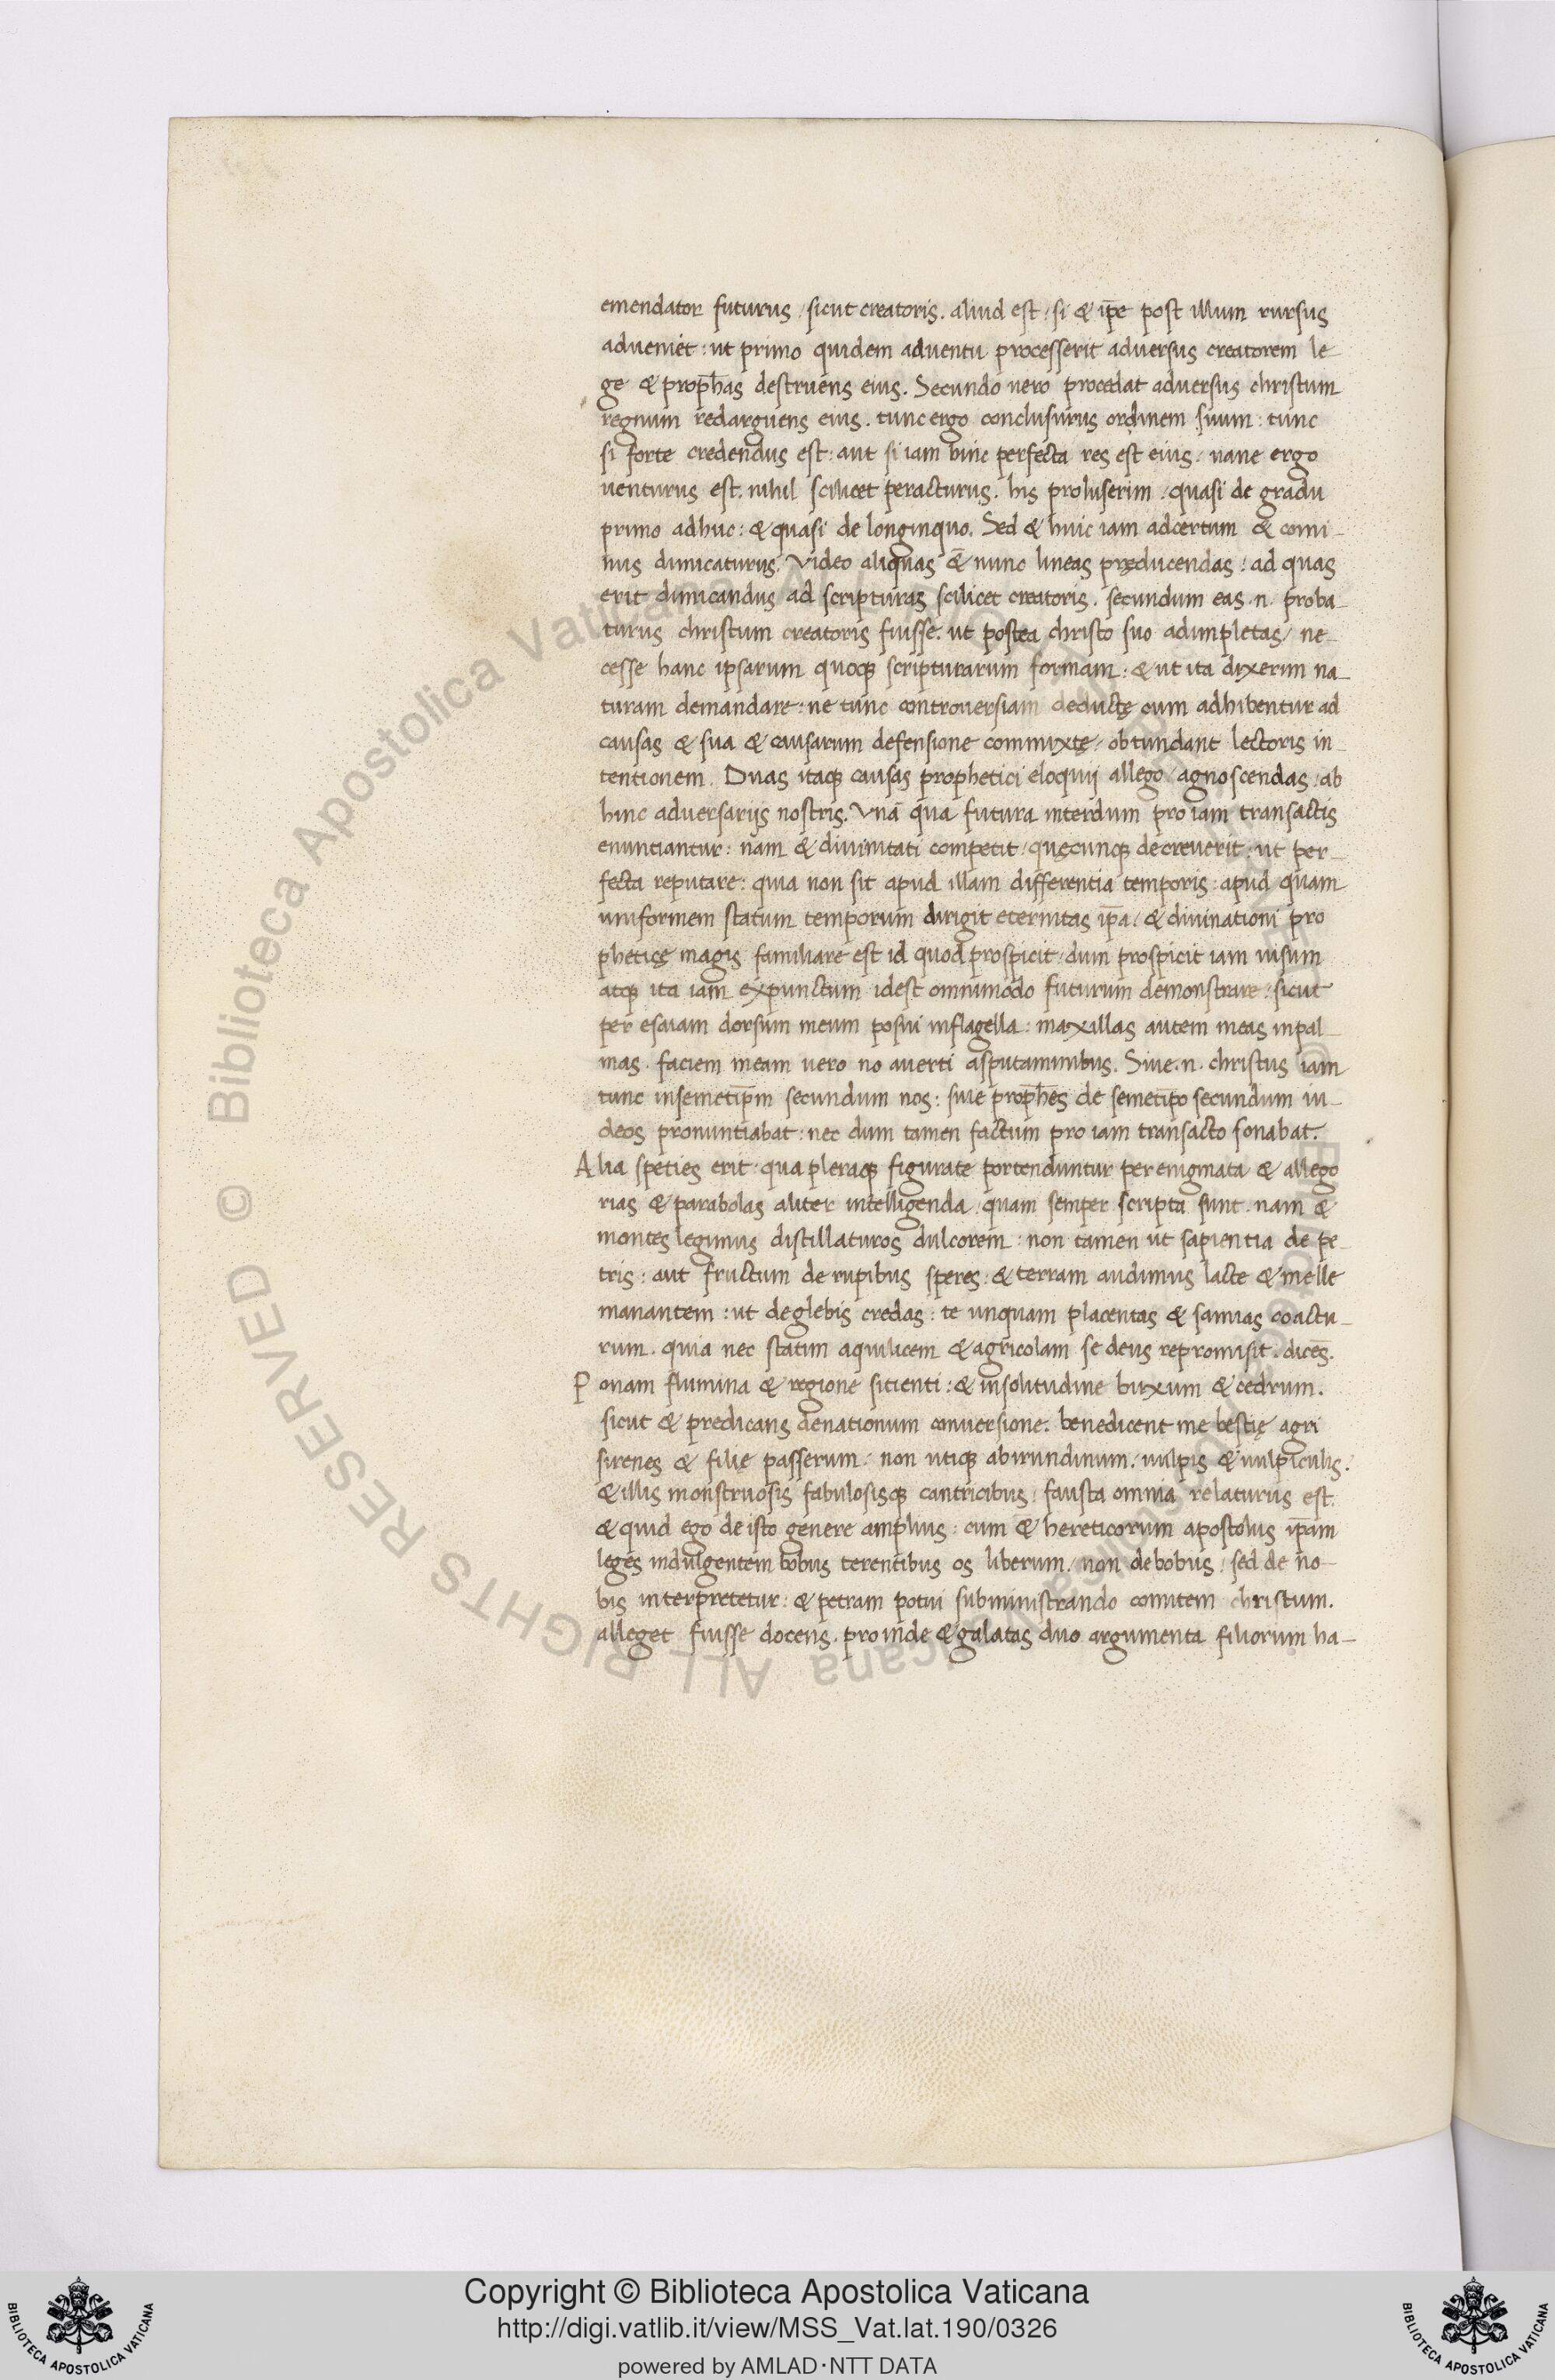 emendator futurus / sicut creatoris. aliud est / si & ip̄e post illum rursus
adueniet : ut primo quidem aduentu processerit aduersus creatorem le-
ge & prop̄has destruens eius. Secundo uero procedat aduersus christum
regnum redarguens eius. tunc ergo conclusurus ordinem suum : tunc
si forte credendus est : aut si iam hinc perfecta res est eius / uane ergo
uenturus est. nihil scilicet peracturus. his proluserim / quasi de gradu
primo adhuc : & quasi de longinquo. Sed & hinc iam adcertum & comi-
nus dimicaturus. Video aliquas & nunc lineas pręducendas : ad quas
erit dimicandus ad scripturas scilicet creatoris. secundum eas .n. proba-
turus christum creatoris fuisse. ut postea christo suo adimpletas / ne-
cesse hanc ipsarum quoqꝫ scripturarum formam : & ut ita dixerim na-
turam demandare : ne tunc controuersiam deductę cum adhibentur ad
causas & sua & causarum defensione commixtę / obtundant lectoris in-
tentionem. Duas itaqꝫ causas prophetici eloquij allego / agnoscendas / ab
hinc aduersarijs nostris. Vnā qua futura interdum pro iam transactis
enuntiantur : nam & diuinitati competit / quęcunqꝫ decreuerit : ut per-
fecta reputare : quia non sit apud illam differentia temporis : apud quam
uniformem statum temporum dirigit eternitas ip̄a / & diuinationi pro
phetię magis familiare est id quod prospicit / dum prospicit iam uisum
atqꝫ ita iam expunctum idest omnimodo futurum demonstrare : sicut
per esaiam dorsum meum posui inflagella : maxillas autem meas inpal-
mas. faciem meam uero no auerti asputaminibus. Siue .n. christus iam
tunc insemetip̄m secundum nos : siue prop̄hes de semetip̄o secundum iu-
deos pronuntiabat : nec dum tamen factum pro iam transacto sonabat.
Alia speties erit / qua pleraqꝫ figurate portenduntur per enigmata & allego
rias & parabolas aliter intelligenda / quam semper scripta sunt. nam &
montes legimus distillaturos dulcorem : non tamen ut sapientia de pe-
tris : aut fructum de rupibus speres : & terram audimus lacte & melle
manantem : ut deglebis credas : te unquam placentas & samias coactu-
rum. quia nec statim aquilicem & agricolam se deus repromisit. dicēs.
Ponam flumina & regione sitienti : & insolitudine buxum & cedrum.
sicut & predicans denationum conuersione. benedicent me bestię agri
sirenes & filię passerum / non utiqꝫ abirundinum / uulpis & uulpiculis.
& illis monstruosis fabulosisqꝫ cantricibus / fausta omnia relaturus est.
& quid ego de isto genere amplius : cum & hereticorum apostolus ip̄am
leges indulgentem bobus terentibus os liberum / non debobus / sed de no-
bis interpretetur : & petram potui subministrando comitem christum.
alleget fuisse docens. proinde & galatas duo argumenta filiorum ha-
© Biblioteca Apostolica Vaticana ALL RIGHTS RESERVED
Copyright © Biblioteca Apostolica Vaticana
http://digi.vatlib.it/view/MSS_Vat.lat.190/0326
powered by AMLAD·NTT DATA
BIBLIOTECA APOSTOLICA VATICANA
BIBLIOTECA APOSTOLICA VATICANA